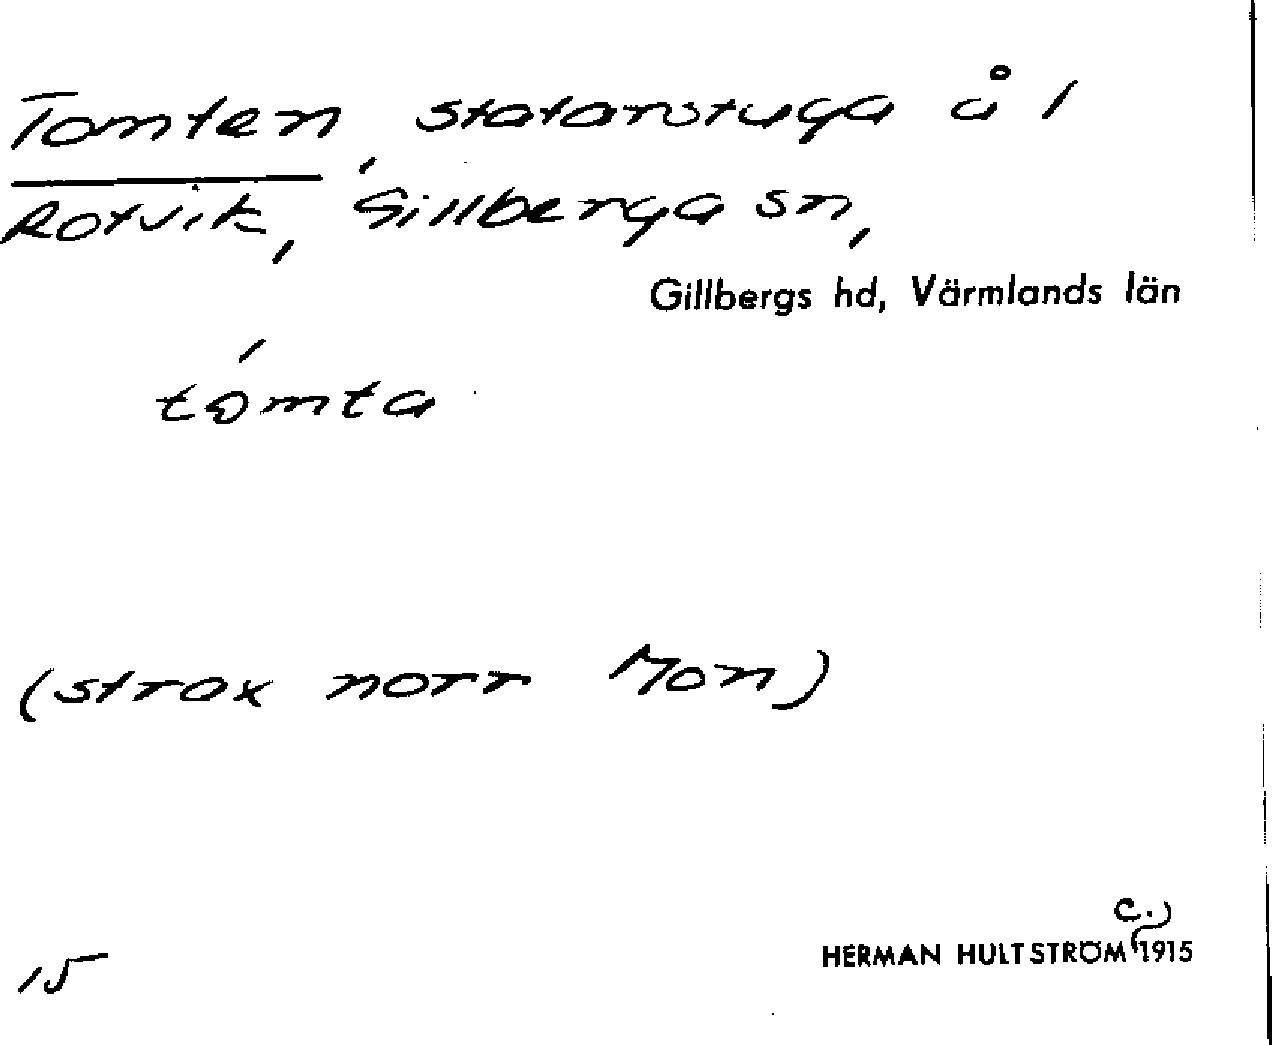 Tomten, statarstuga å 1
Rotvik, Gillberga sn,
Gillbergs hd, Värmlands län
tómta
(strax norr Mon)
c.
HERMAN HULTSTRÖM 1915
15